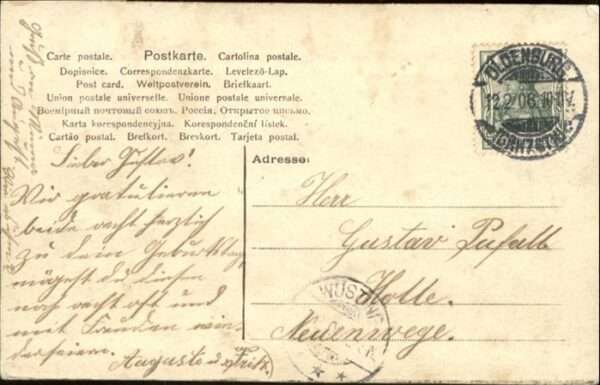 Carte postale. Postkarte. Cartolina postale.
Dopisnice. Correspondenzkarte. Levelező-Lap.
Post card. Weltpostverein. Briefkaart.
Union postale universelle. Unione postale universale.
Всемірный почтовый союзъ. Россія. Открытое письмо.
Karta korespondencyjna. Korespondenční lístek.
Cartão postal. Brefkort. Brevkort. Tarjeta postal.
Lieber Gustav!
Wir gratulieren
beide recht herzlich
zu dem Geburtstag
mögest du diesen
noch recht oft und
mit Freuden wie
derfeiern.
Auguste u Fritz.
Adresse:
Herr
Gustav Pufalt
Holle.
Neuenwege.
OLDENBURG
12.2.06.
WÜSTING